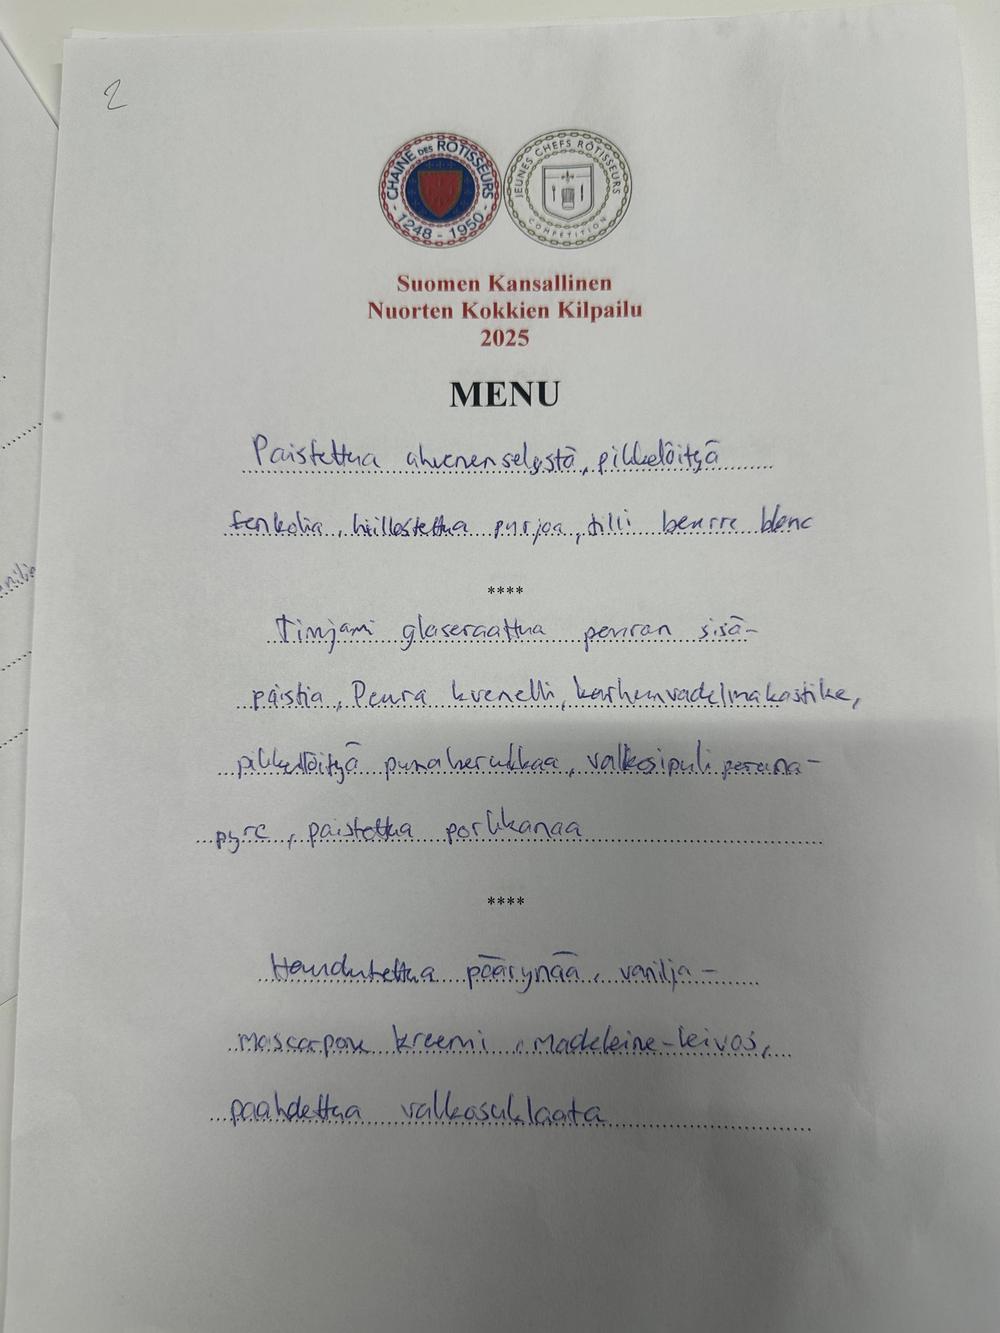 2
CHAINE DES ROTISSEURS
- 1248 - 1950 -
JEUNES CHEFS ROTISSEURS
COMPETITION
Suomen Kansallinen
Nuorten Kokkien Kilpailu
2025
MENU
Paistettua ahvenen selystä, pikkelöityä
fenkolia, hiillostettua purjoa, tilli beurre blanc
****
Timjami glaseraattua peuran sisä-
paistia, Peura kvenelli, karhunvadelmakastike,
pikkelöityä punaherukkaa, valkosipuli peruna-
pyre, paistettua porkkanaa
****
Haudutettua päärynää, vanilja-
mascarpone kreemi, madeleine-leivos,
paahdettua valkosuklaata